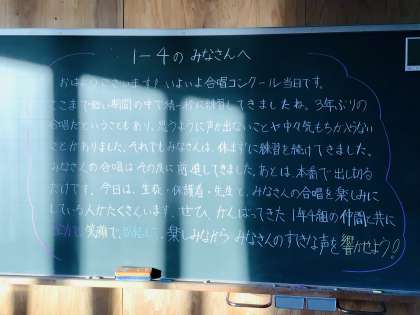 1-4の みなさんへ
おはようございます！いよいよ合唱コンクール当日です。
ここまで短い期間の中で精一杯に練習してきましたね。3年ぶりの
合唱だということもあり、思うように声が出ないことや中々気もちがのらない
ことがありました。それでもみなさんは、休まずに練習を続けてきました。
みなさんの合唱はその度に前進してきました。あとは、本番で出し切る
だけです。今日は、生徒・保護者・先生と、みなさんの合唱を楽しみに
している人がたくさんいます。ぜひ、がんばってきた1年4組の仲間と共に
笑顔で、楽しみながら みなさんのすてきな声を響かせよう！